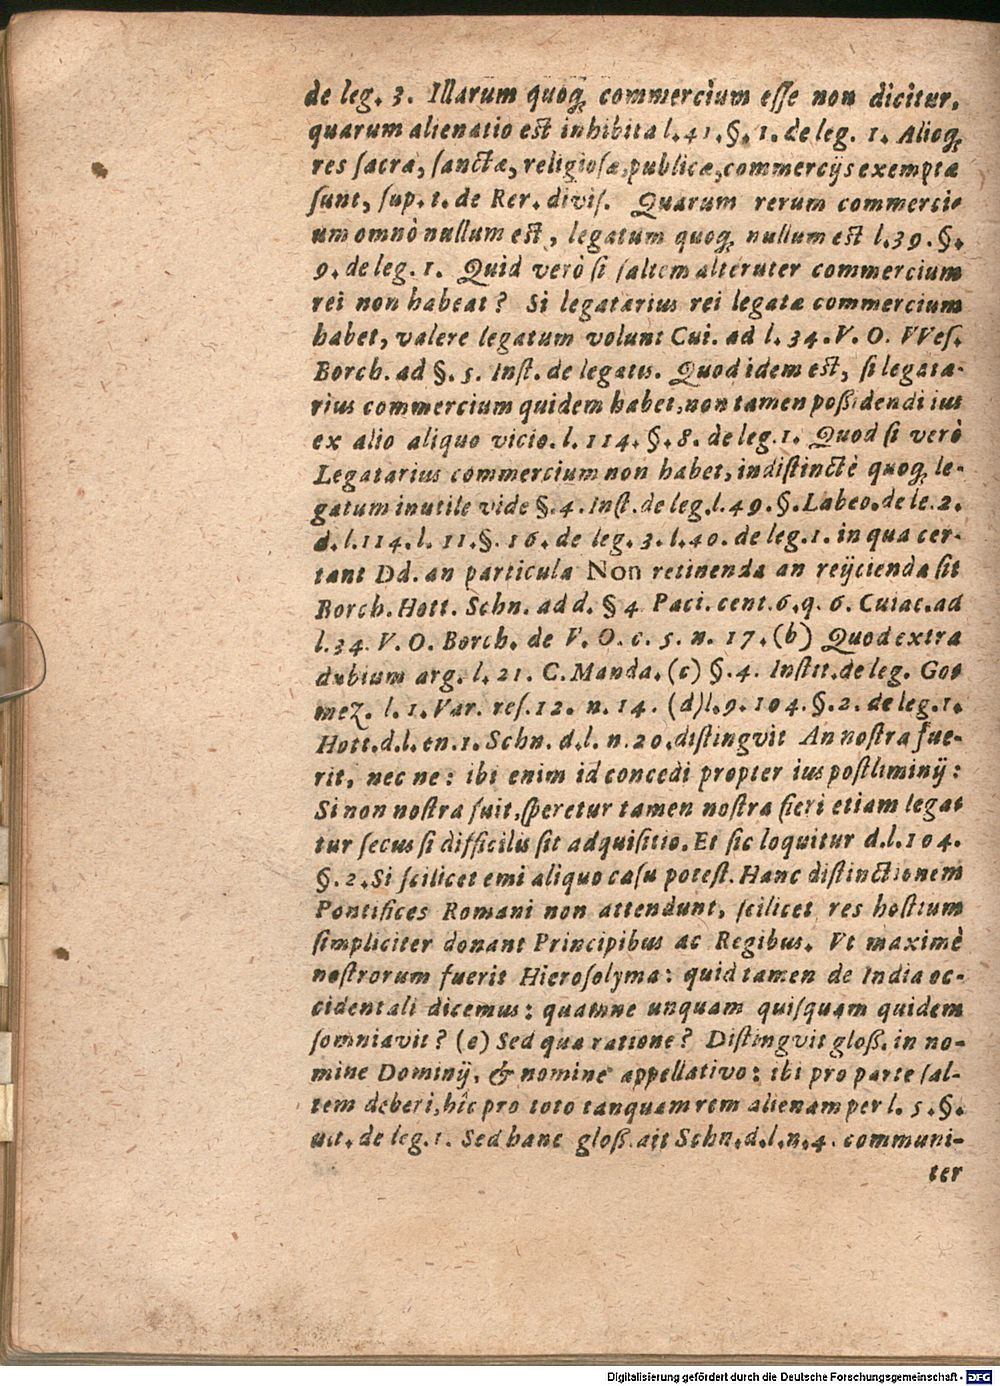 de leg. 3. Illarum quoq; commercium esse non dicitur,
quarum alienatio est inhibita l. 41. §. 1. de leg. 1. Alioq;
res sacræ, sanctæ, religiosæ, publicæ, commercijs exemptæ
sunt, sup. t. de Rer. divis. Quarum rerum commerci-
um omnò nullum est, legatum quoq; nullum est l. 39. §.
9. de leg. 1. Quid verò si saltem alteruter commercium
rei non habeat? Si legatarius rei legatæ commercium
habet, valere legatum volunt Cui. ad l. 34. V. O. VVes.
Borch. ad §. 5. Inst. de legatis. Quod idem est, si legata-
rius commercium quidem habet, non tamen poßidendi ius
ex alio aliquo vicio. l. 114. §. 8. de leg. 1. Quod si verò
Legatarius commercium non habet, indistinctè quoq; le-
gatum inutile vide §. 4. Inst. de leg. l. 49. §. Labeo. de le. 2.
d. l. 114. l. 11. §. 16. de leg. 3. l. 40. de leg. 1. in qua cer-
tant Dd. an particula Non retinenda an reijcienda sit
Borch. Hott. Schn. ad d. § 4 Paci. cent. 6. q. 6. Cuiac. ad
l. 34. V. O. Borch. de V. O. c. 5. n. 17. (b) Quod extra
dubium arg. l. 21. C. Manda. (c) §. 4. Instit. de leg. Go-
meZ. l. 1. Var. res. 12. n. 14. (d) l. 9. 104. §. 2. de leg. 1.
Hott. d. l. en. 1. Schn. d. l. n. 20. distingvit An nostra fue-
rit, nec ne: ibi enim id concedi propter ius postliminij:
Si non nostra fuit, speretur tamen nostra fieri etiam lega-
tur secus si difficilis sit adquisitio. Et sic loquitur d. l. 104.
§. 2. Si scilicet emi aliquo casu potest. Hanc distinctionem
Pontifices Romani non attendunt, scilicet res hostium
simpliciter donant Principibus ac Regibus. Vt maximè
nostrorum fuerit Hierosolyma: quid tamen de India oc-
cidentali dicemus: quamne unquam quisquam quidem
somniavit? (e) Sed qua ratione? Distingvit gloß. in no-
mine Dominij, & nomine appellativo: ibi pro parte sal-
tem deberi, hîc pro toto tanquam rem alienam per l. 5. §.
ult. de leg. 1. Sed hanc gloß. ait Schn. d. l. n. 4. communi-
ter
Digitalisierung gefördert durch die Deutsche Forschungsgemeinschaft - DFG